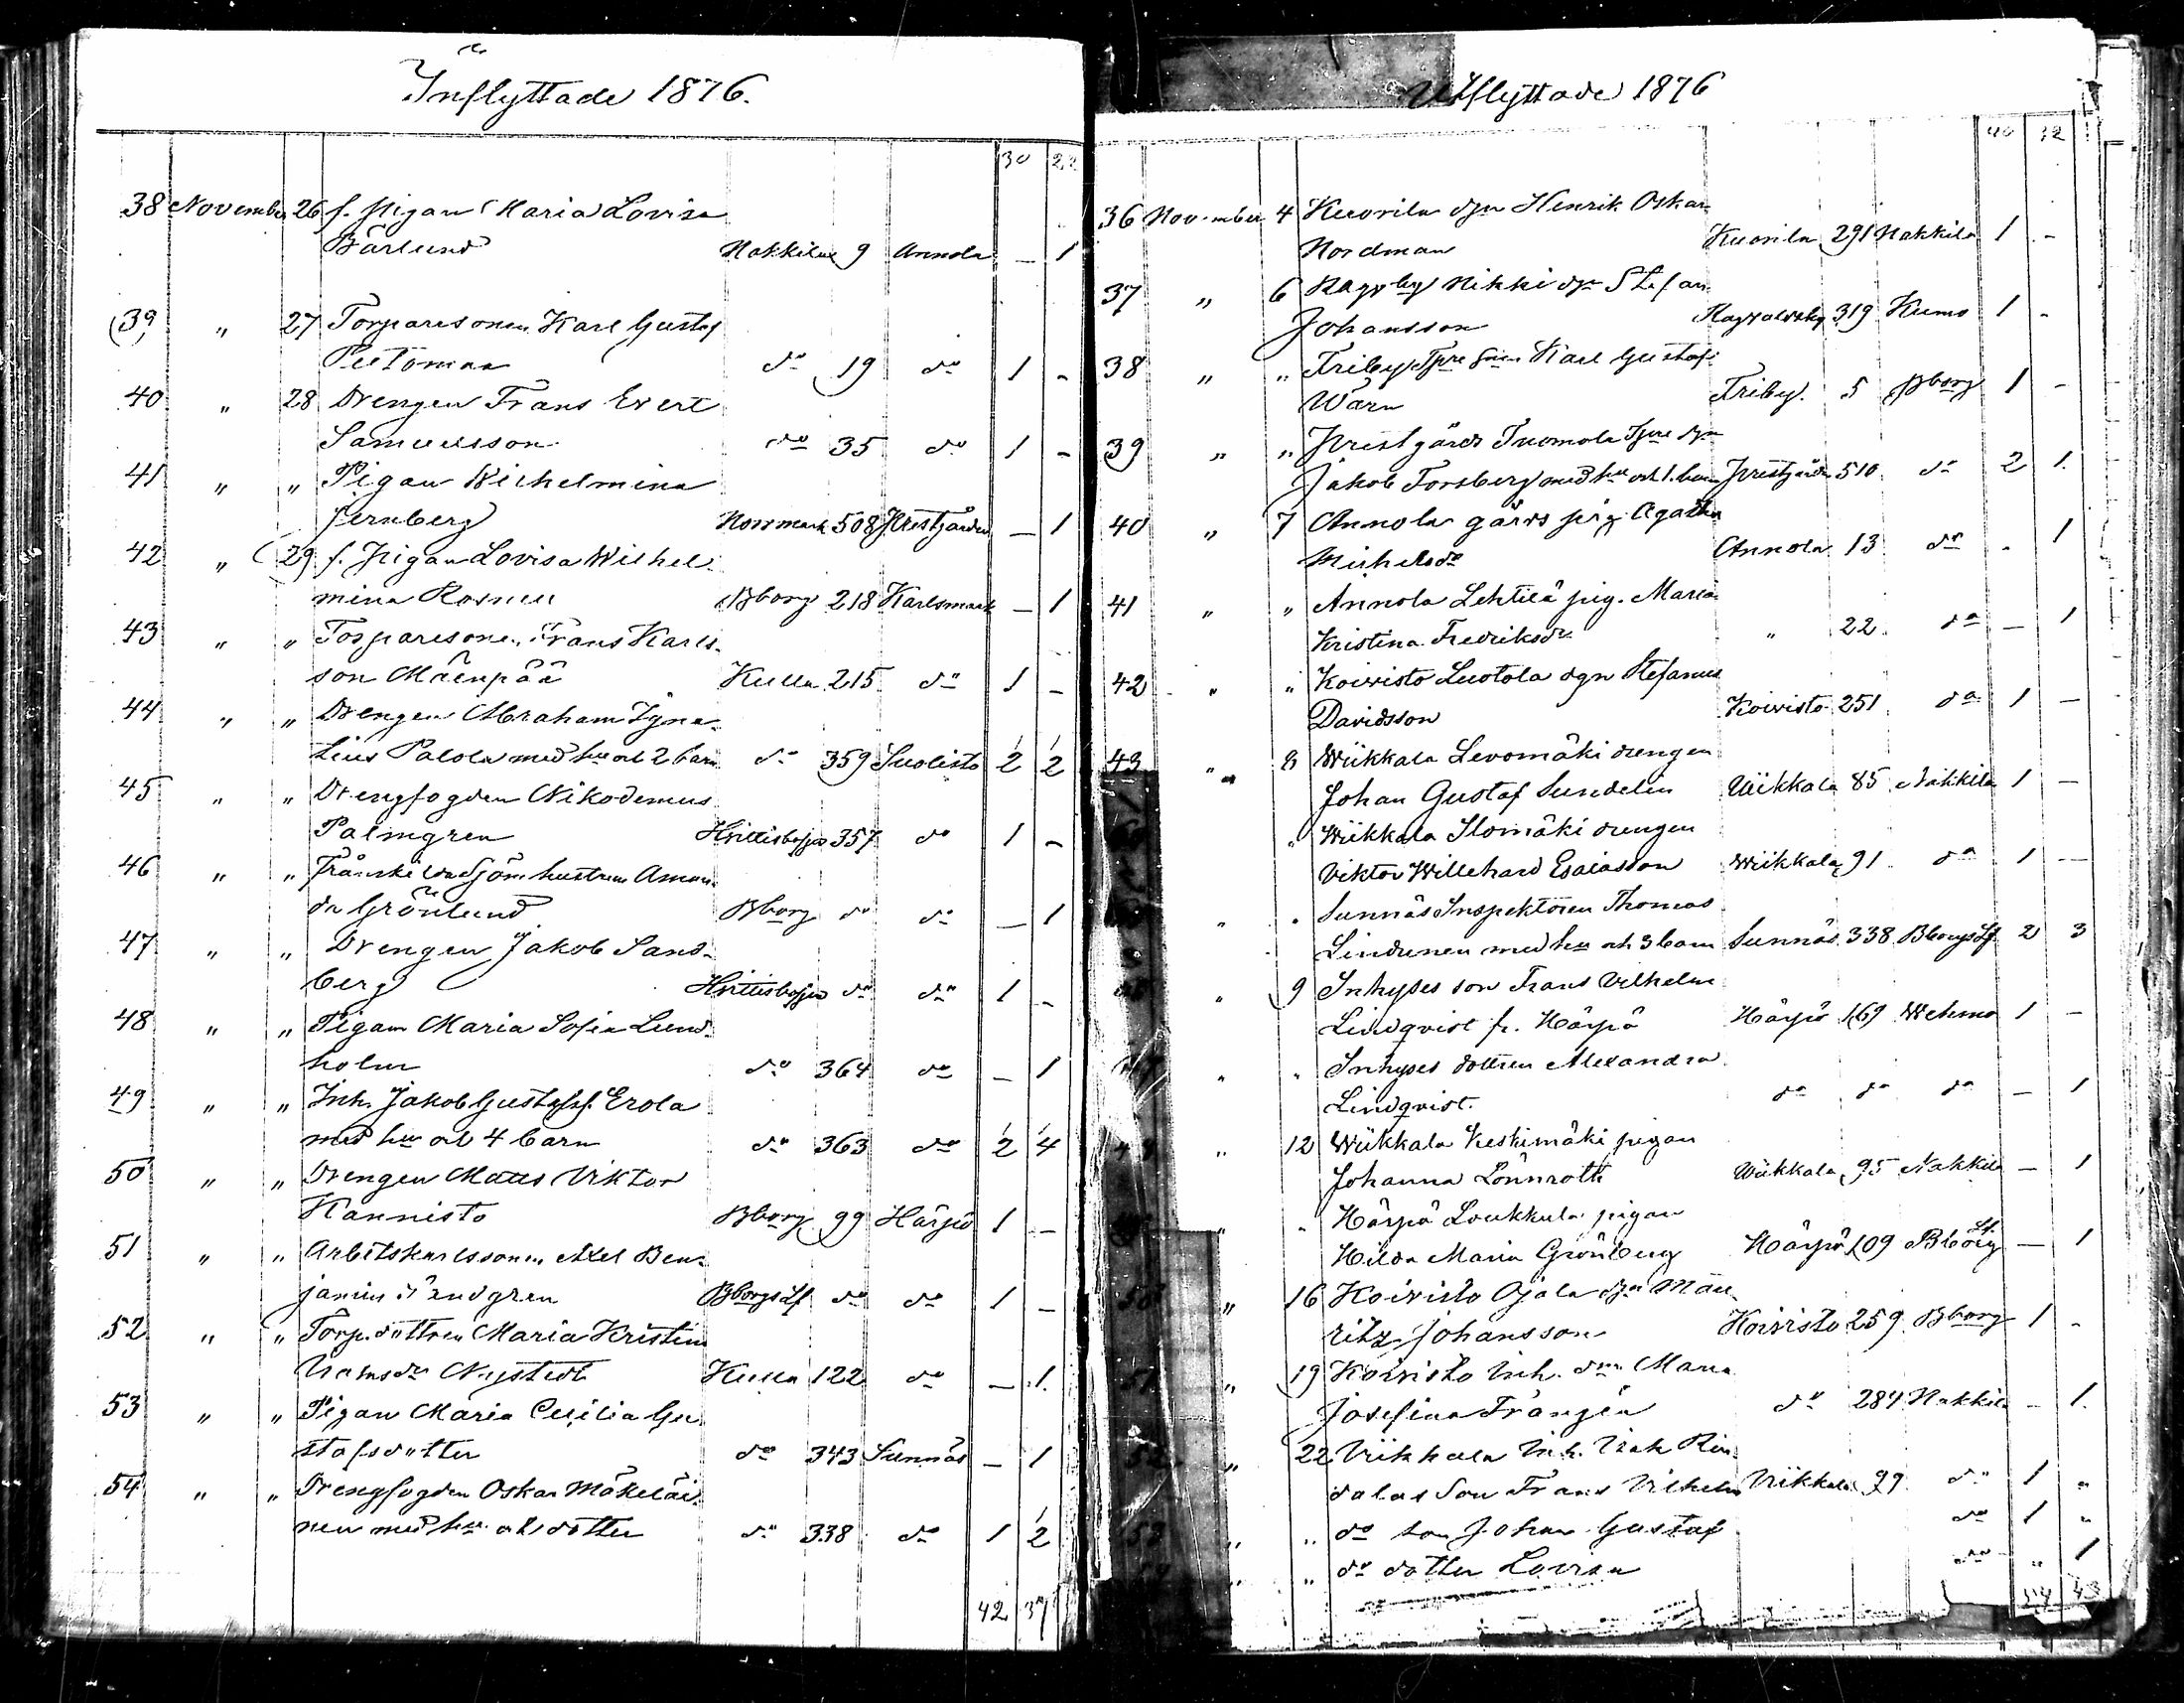 Inflyttade 1876.
30 22
38 November 26 f. Pigan Maria Lovisa
Bärlund Nakkila 9 Annola — 1
39 " 27 Torparesonen Karl Gustaf
do 19 do 1 -
40 " 28 Drengen Frans Evert
Samuelsson do 35 do 1 -
41 " " Pigan Wilhelmina
Jernberg Norrmark 508 Prestgården — 1
42 " 29 f. Pigan Lovisa Wilhel
mina Bborg 218 Karlsmark — 1
43 " " Torparesonen Frans Karls-
son Mäenpää Kulla 215 do 1 -
44 " " Drengen Abraham Igna-
tius Palola med hu och 2 barn do 359 Suolisto 2 2
45 " " Drengfogden Nikodemus
Palmgren Hvittisbofjärd 357 do 1 -
46 " " hustrun Aman-
da Grönlund Bborg do do — 1
47 " " Drengen Jakob Sand-
berg Hvittisbofjärd do do 1 -
48 " " Pigan Maria Sofia Lund-
holm do 364 do — 1
49 " " Inh. Jakob Gustafss. Erola
med hu och 4 barn do 363 do 2 4
50 " " Drengen Matts Viktor
Kannisto Bborg 99 Härpö 1 -
51 " " Arbetskarlssonen Axel Ben-
jamin Bborgs Lf do do 1 -
52 " " Torp. dottren Maria Kristina
Nystedt Kulla 122 do — 1.
53 " " Pigan Maria Cecilia Gu
stafsdotter do 343 Sunnäs — 1
54 " " Drengfogden Oskar Mäkeläi-
nen med hu och dotter do 338 do 1 2
42 37
Utflyttade 1876
40 32
36 November 4 Kuorila dgn Henrik Oskar
Nordman Kuorila 291 Nakkila 1 -
37 " 6 Ragvby Nikki dgn Stefan
Johansson 319 Kumo 1 -
38 " " Friby Tpre Karl Gustaf
Wärn Friby. 5 Bborg 1 -
39 " " Prestgårds Tuomola Tpre dgn
Jakob Forsberg med hu och 1. barn Prestgården 510 do 2 1.
40 " 7 Annola gårds pig. Agatha
Michelsdr Annola 13 do - 1
41 " " Annola Lehtilä pig. Maria
Kristina Fredriksdr " 22 do — 1
42 " " Koivisto Luotola dgn Stefanus
Davidsson Koivisto 251 do 1 —
43 " 8 Wiikkala Levomäki drengen
Johan Gustaf Sundelin Wiikkala 85 Nakkila 1 —
" Wiikkala Ilomäki drengen
Viktor Willehard Esaiasson Wiikkala 91 do 1 —
" " Sunnäs Inspektoren Thomas
med hu och 3 barn Sunnäs 338 Bborgs Lf 2 3
" 9 Inhyses son Frans Vilhelm
Lindqvist fr. Härpö Härpö 169 Wehmo 1 -
" " Inhyses dottren Alexandra
Lindqvist. do do do — 1
" 12 Wiikkala Keskimäki pigan
Johanna Lönnroth Wiikkala 95 Nakkila — 1
" " Härpö Loukkula pigan
Hilda Maria Grönberg Härpö 109 Bborg Lf. — 1
50 " 16 Koivisto Ojala dgn Mau-
ritz Johansson Koivisto 259 Bborg 1 -
51 " 19 Koivisto Inh. dr Maria
Josefina do 284 Nakkila - 1.
52 " 22 Viikkala Inh. Isak Rin-
dalas Son Frans Vilhelm Viikkala 99 do 1 "
53 " " do son Johan Gustaf do 1 "
" " do dotter Lovisa do " 1
54 43